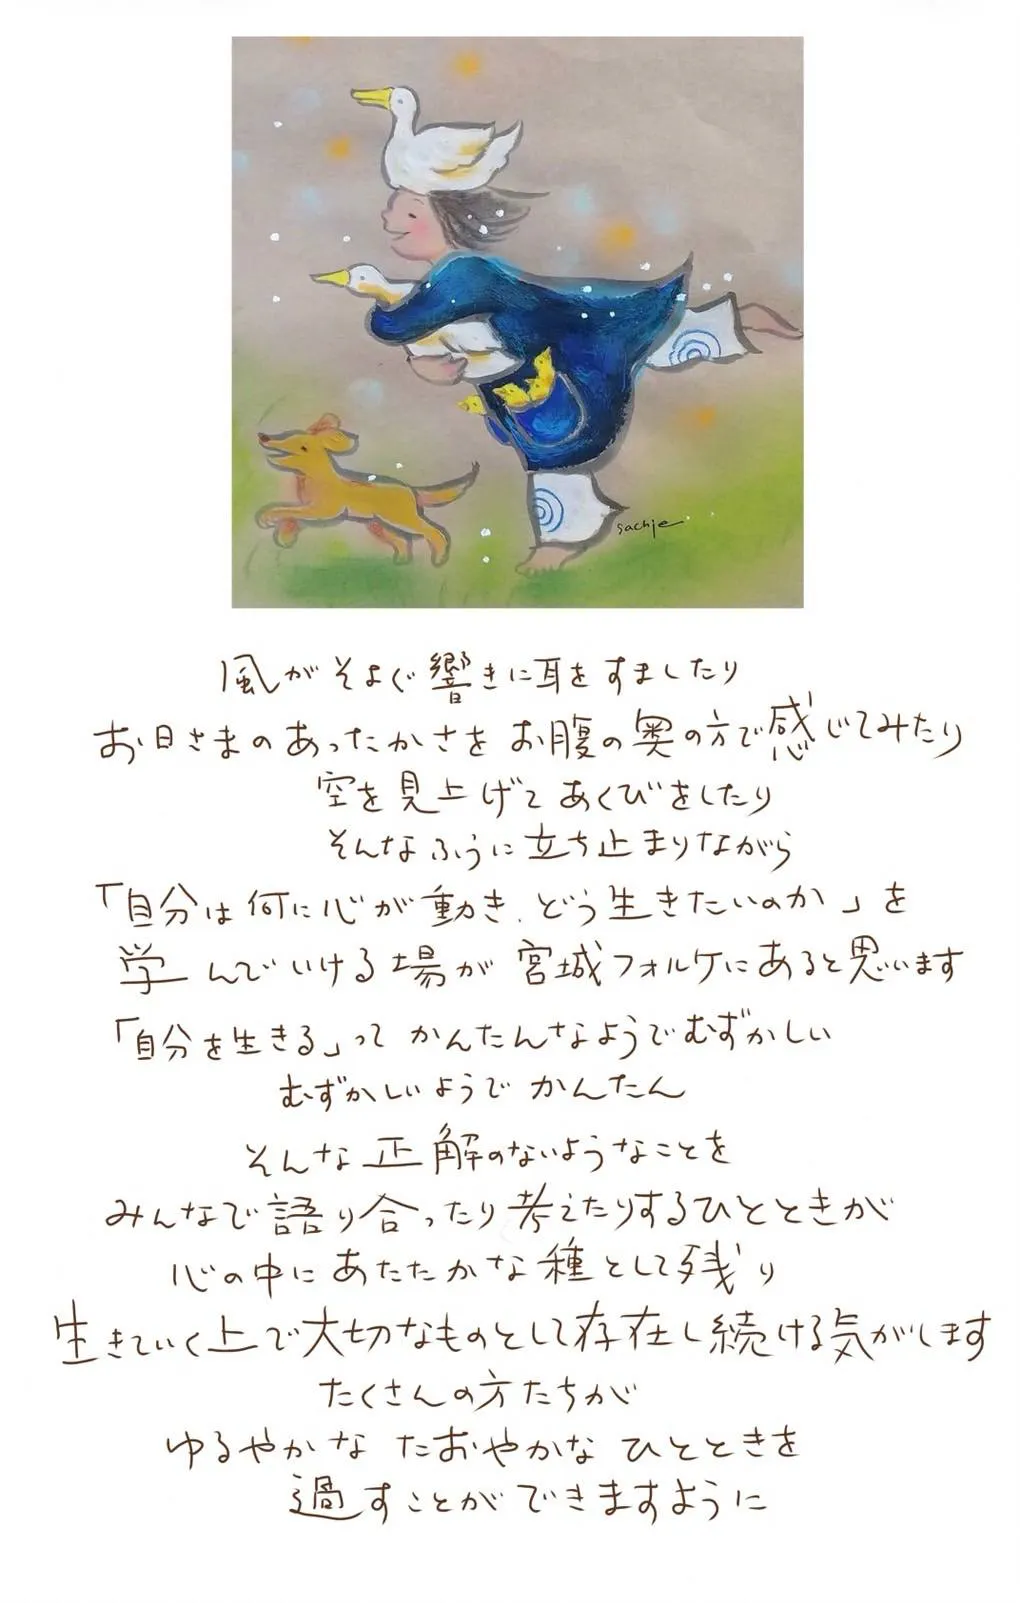 sachie
風がそよぐ響きに耳をすましたり
お日さまのあったかさを お腹の奥の方で感じてみたり
空を見上げて あくびをしたり
そんなふうに立ち止まりながら
「自分は何に心が動き、どう生きたいのか」を
学んでいける場が 宮城フォルケにあると思います
「自分を生きる」って かんたんなようでむずかしい
むずかしいようで かんたん
そんな 正解のないようなことを
みんなで語り合ったり考えたりするひとときが
心の中に あたたかな種として残り
生きていく上で大切なものとして存在し続ける気がします
たくさんの方たちが
ゆるやかな たおやかな ひとときを
過すことができますように